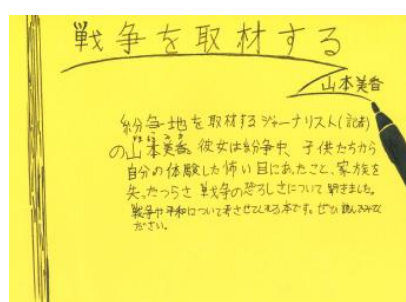 戦争を取材する
山本美香
紛争地を取材するジャーナリスト(記者)
の山本美香。彼女は紛争中、子供たちから
自分の体験した怖い目にあたこと、家族を
失ったつらさ 戦争の恐ろしさについて聞きました。
戦争や平和について考させてくれる本です。ぜひ読んでみてく
ださい。